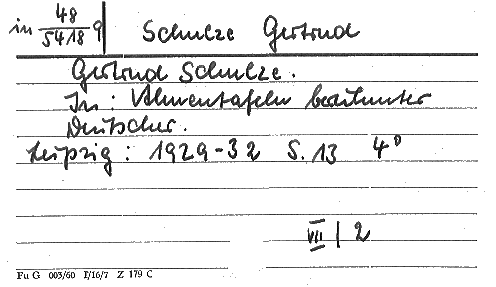 in 48/5418 q Schulze Gertrud
Gertrud Schulze.
In: Ahnentafeln berühmter
Deutscher.
Leipzig: 1929-32 S. 13 4°
VII | 2
Fu G 003/60 I/16/7 Z 179 C